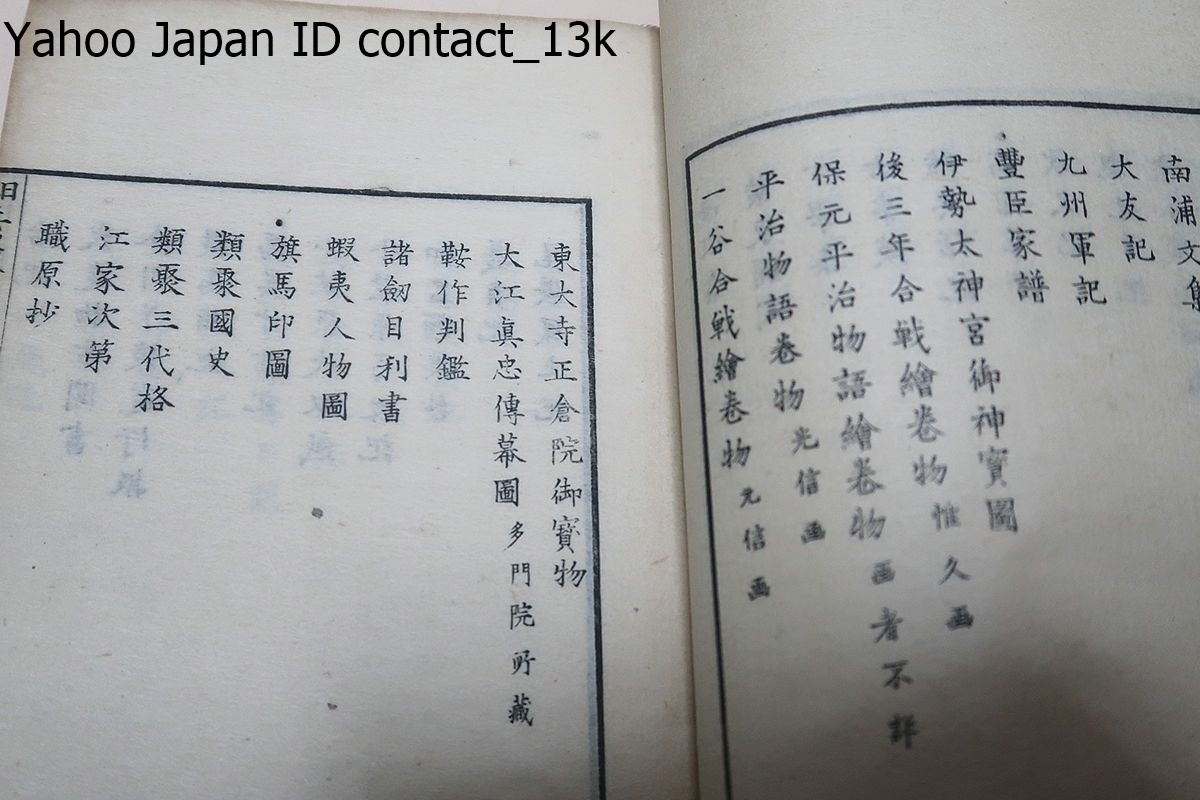 Yahoo Japan ID contact_13k
南浦文集
大友記
九州軍記
豐臣家譜
伊勢太神宮御神寶圖
後三年合戰繪卷物 惟久画
保元平治物語繪卷物 画者不詳
平治物語卷物 光信画
一谷合戰繪卷物 元信画
東大寺正倉院御寶物
大江眞忠傳幕圖 多門院所藏
鞍作判鑑
諸劔目利書
蝦夷人物圖
旗馬印圖
類聚國史
類聚三代格
江家次第
職原抄